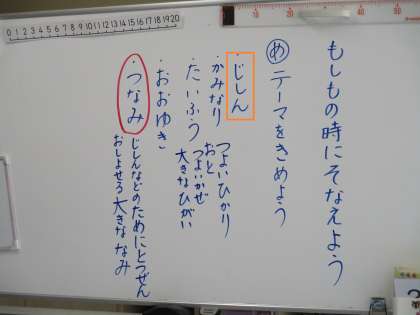 もしもの時にそなえよう
め テーマをきめよう
・じしん
・かみなり つよいひかり
おと
・たいふう つよいかぜ
大きなひがい
・おおゆき
・つなみ じしんなどのためにとつぜん
おしよせる大きななみ
0 1 2 3 4 5 6 7 8 9 10 11 12 13 14 15 16 17 18 19 20
10 20 30 40 50